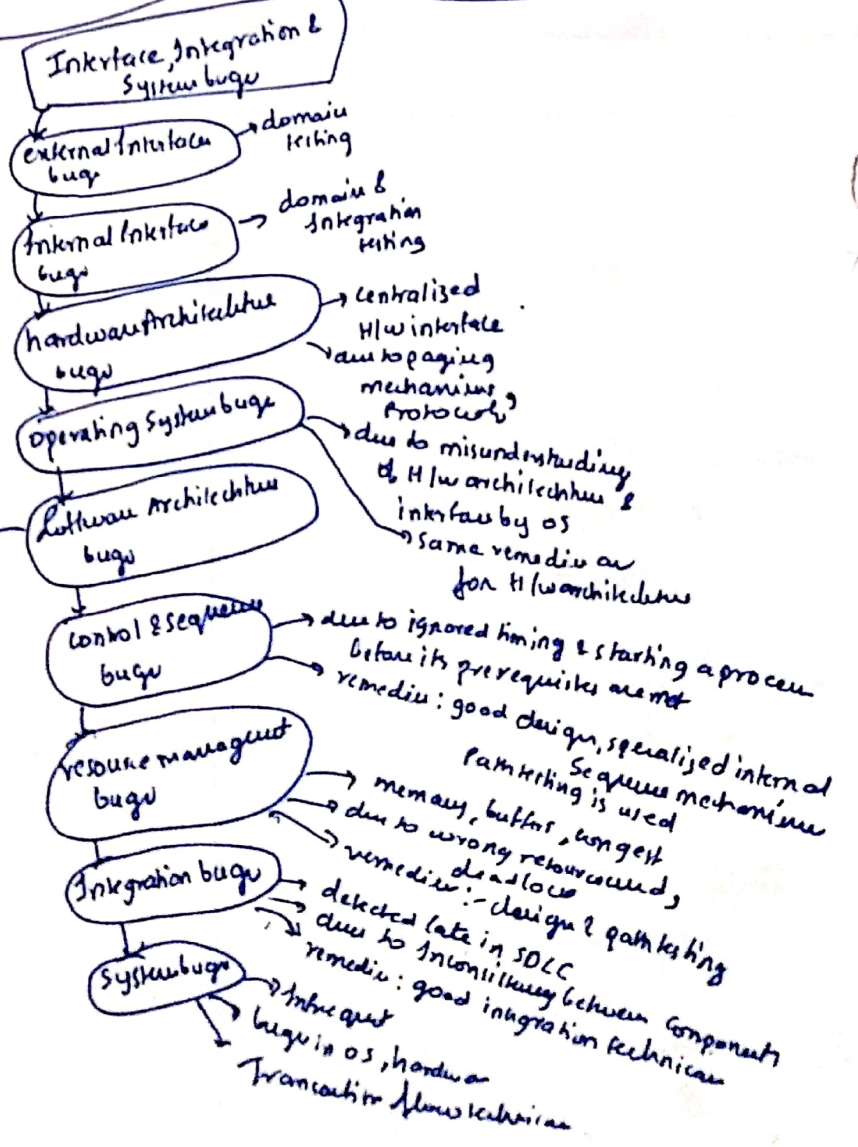 Interface, Integration &
System bugs
external Interface
bugs
→ domain
testing
Internal Interface
bugs
→ domain &
Integration
testing
hardware Architechture
bugs
→ centralised
H/w interface
→ due to paging
mechanisms,
Protocols
Operating System bugs
→ due to misunderstanding
of H/w architechture &
interface by OS
→ Same remedies as
for H/w architechture
Software Architechture
bugs
Control & Sequence
bugs
→ due to ignored timing & starting a process
before its prerequisites are met
→ remedies : good design, specialised internal
Sequence mechanisms
Path testing is used
resource managment
bugs
→ memory, buffers, longest
→ due to wrong resource used,
deadlock
→ remedies :- design & path testing
Integration bugs
→ detected late in SDLC
→ due to Inconsistency between Components
→ remedies : good integration techniques
System bugs
→ Infrequent
→ bugs in OS, hardware
→ Transaction flow techniques